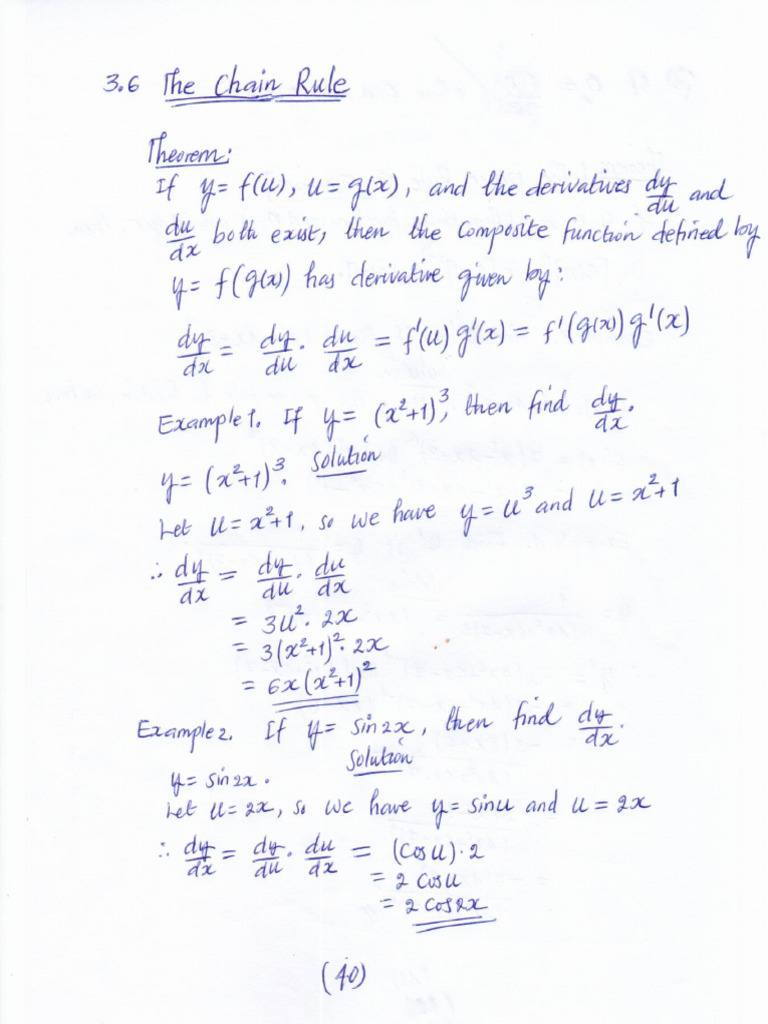 3.6 The Chain Rule
Theorem:
If y = f(u), u = g(x), and the derivatives dy/du and
du/dx both exist, then the Composite function defined by
y = f(g(x)) has derivative given by:
dy/dx = dy/du . du/dx = f'(u) g'(x) = f'(g(x)) g'(x)
Example 1. If y = (x²+1)³, then find dy/dx.
Solution
y = (x²+1)³.
Let u = x²+1, so we have y = u³ and u = x²+1
∴ dy/dx = dy/du . du/dx
= 3u². 2x
= 3(x²+1)². 2x
= 6x(x²+1)²
Example 2. If y = sin2x, then find dy/dx.
Solution
y = sin2x.
Let u = 2x, so we have y = sinu and u = 2x
∴ dy/dx = dy/du . du/dx = (Cosu).2
= 2 Cosu
= 2 Cos2x
(40)